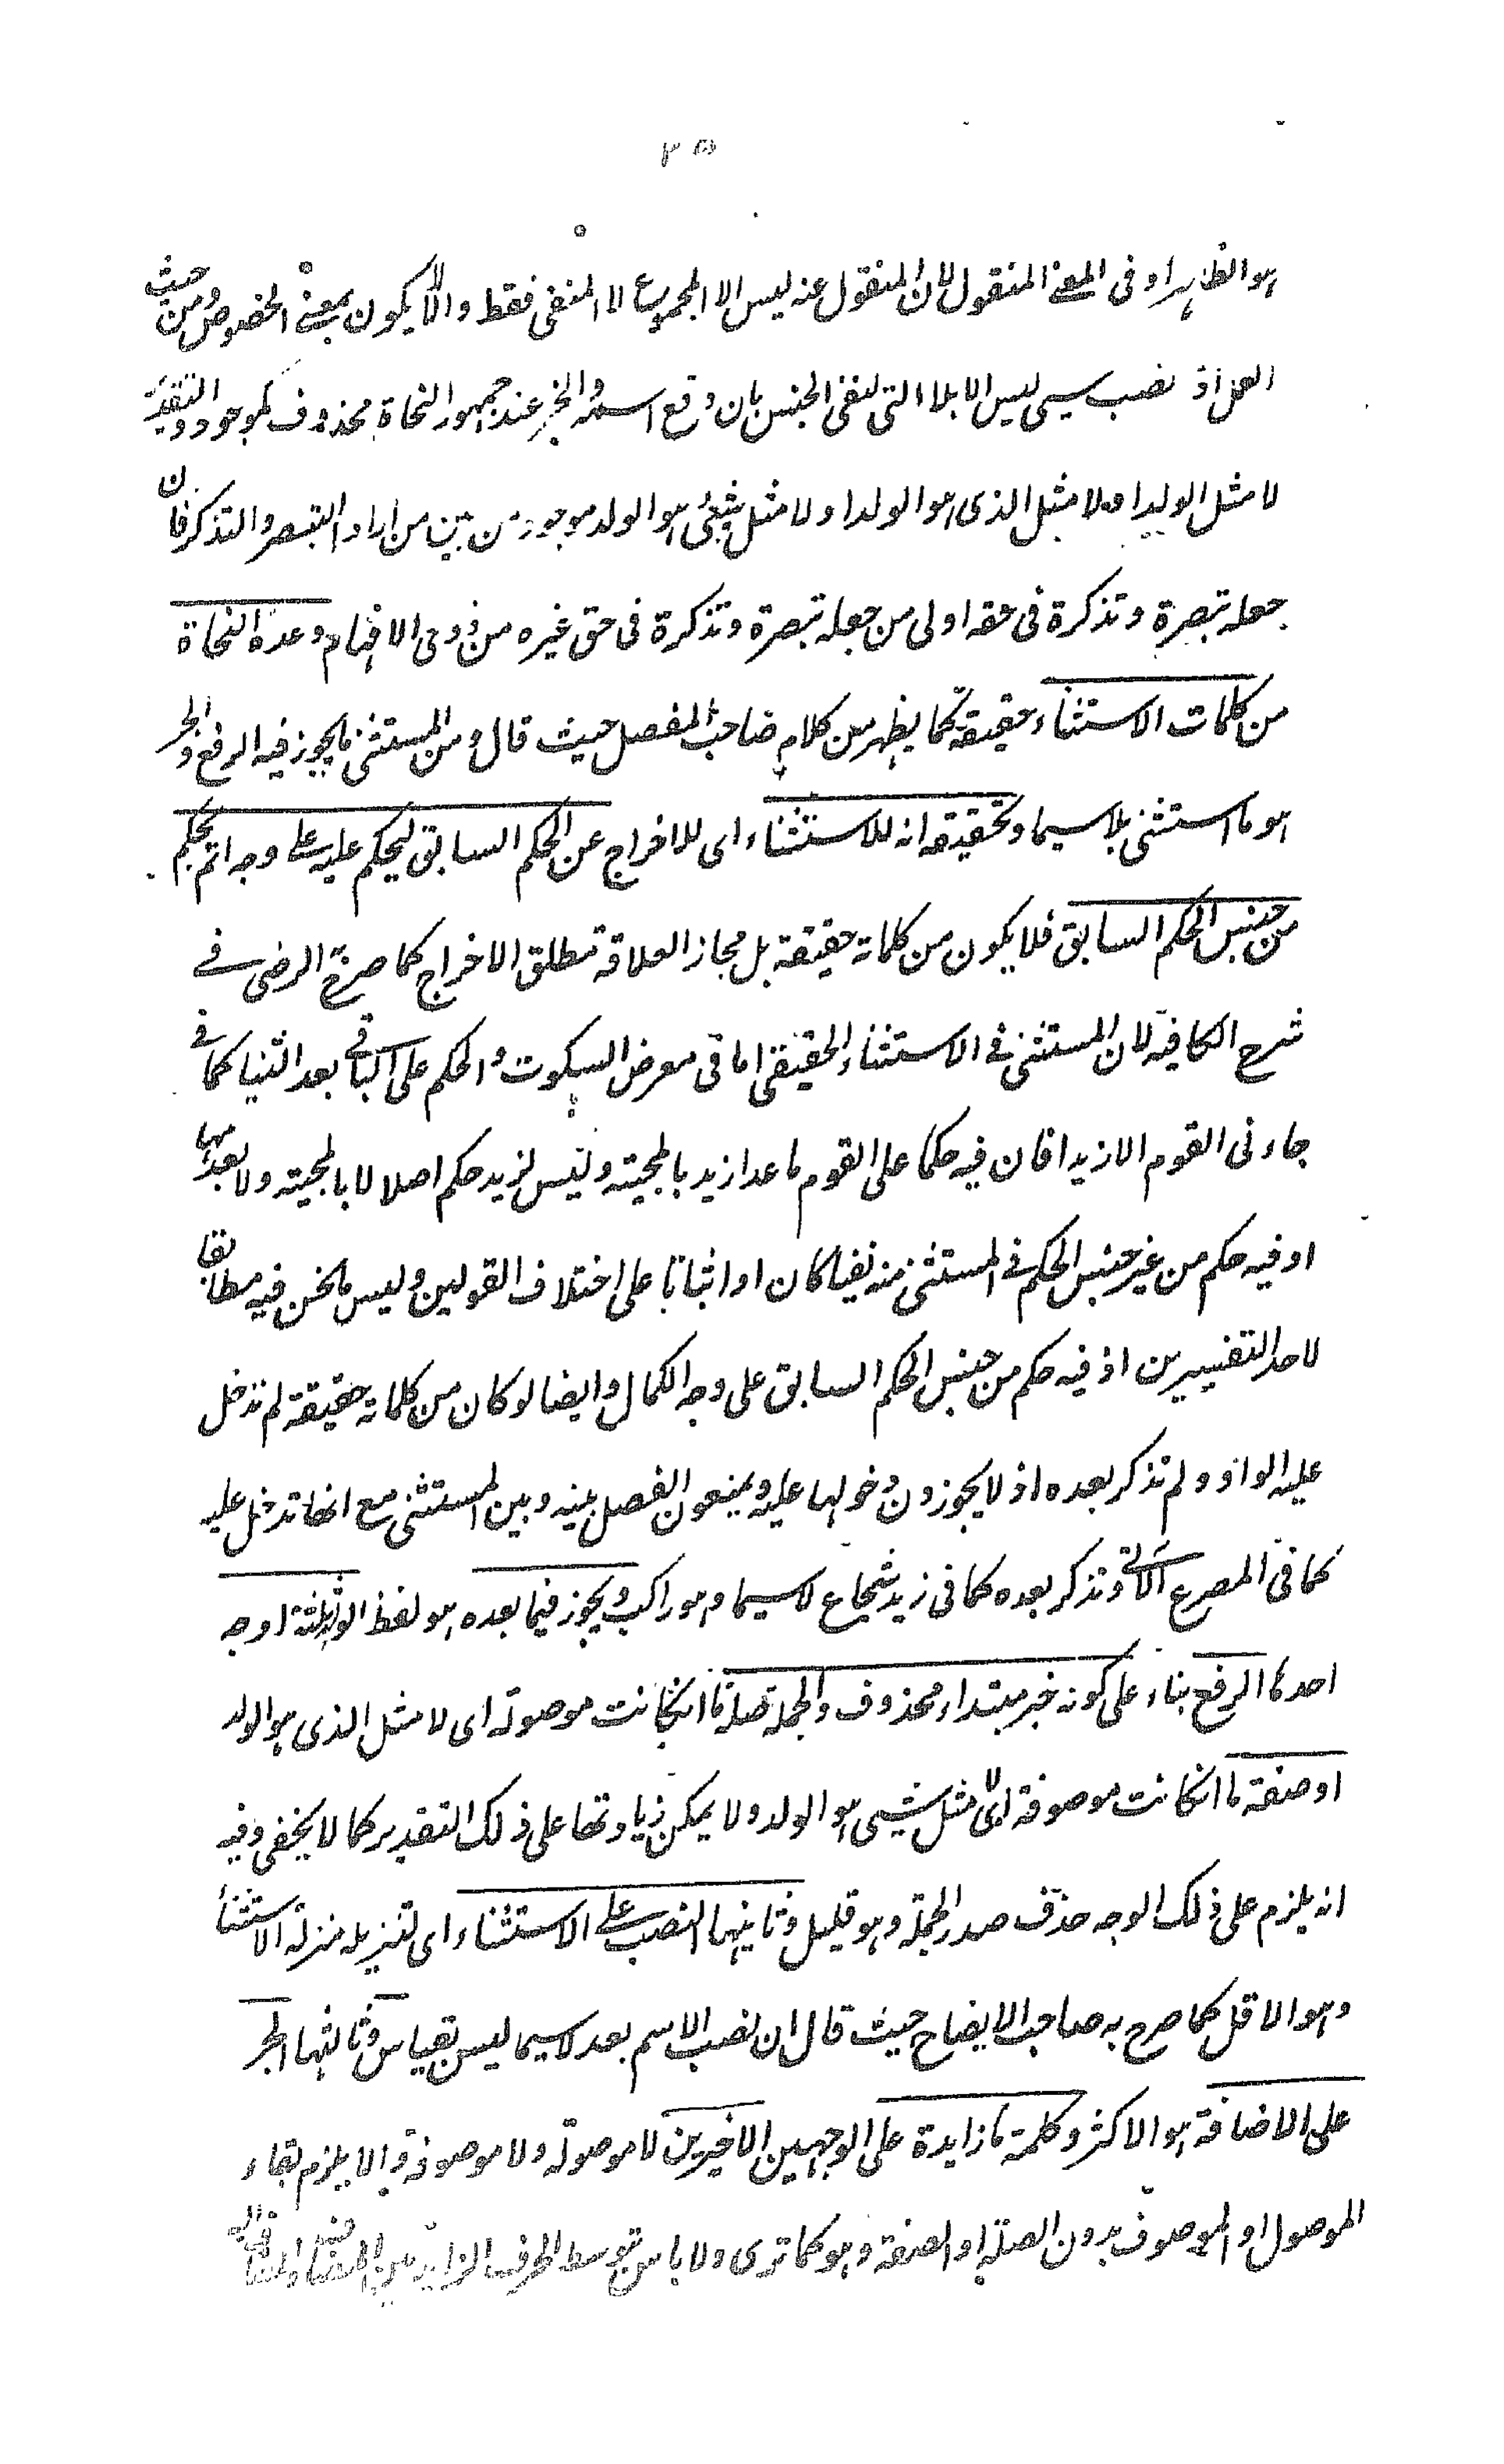 ٢٥
هو الظاهر او فى المعنى المنقول لان المنقول عنه ليس الا المجموع لا المنفى فقط والا لا يكون بمعنى الخصوص ومن حيث
العمل اذ نصب سيى ليس الا بلا التى لنفى الجنس بان وقع اسمه والخبر عند جمهور النحاة محذوف كموجود والتقدير
لا مثل الولد او لا مثل الذى هو الولد او لا مثل شيئ هو الولد موجود من بين من اراد التبصر والتذكر فان
جعله تبصرة وتذكرة فى حقه اولى من جعله تبصرة وتذكرة فى حق غيره من ذوى الافهام وعده النحاة
من كلمات الاستثناء حقيقة كما يظهر من كلام صاحب المفصل حيث قال ومن المستثنى ما يجوز فيه الرفع والجر
هو ما استثنى بلا سيما وتحقيقه انه للاستثناء اى للاخراج عن الحكم السابق ليحكم عليه على وجه اتم بحكم
من جنس الحكم السابق فلا يكون من كلماته حقيقة بل مجازا لعلاقة مطلق الاخراج كما صرح الرضى فى
شرح الكافية لان المستثنى فى الاستثناء الحقيقى اما فى معرض السكوت والحكم على الباقى بعد الثنيا كما فى
جاءنى القوم الا زيدا فان فيه حكما على القوم ما عدا زيد بالمجيئة وليس لزيد حكم اصلا لا بالمجيئة ولا بعدمها
او فيه حكم من غير جنس الحكم فى المستثنى منه نفيا كان او اثباتا على اختلاف القولين وليس ما نحن فيه مطابقا
لاحد التفسيرين اذ فيه حكم من جنس الحكم السابق على وجه الكمال وايضا لو كان من كلماته حقيقة لم تدخل
عليه الواو ولم تذكر بعده اذ لا يجوزون دخولها عليه ويمنعون الفصل بينه وبين المستثنى مع انها تدخل عليه
كما فى المصرع الآتى وتذكر بعده كما فى زيد شجاع لا سيما وهو راكب ويجوز فيما بعده هو لفظ الولد ثلثة اوجه
احدها الرفع بناء على كونه خبر مبتداء محذوف والجملة صلة ما ان كانت موصولة اى لا مثل الذى هو الولد
او صفة ما ان كانت موصوفة اى لا مثل شيىء هو الولد ولا يمكن زيادتها على ذلك التقدير كما لا يخفى وفيه
انه يلزم على ذلك الوجه حذف صدر الجملة وهو قليل وثانيها النصب على الاستثناء اى لتنزيله منزلة الاستثناء
وهو الاقل كما صرح به صاحب الايضاح حيث قال ان نصب الاسم بعد لا سيما ليس بقياس وثالثها الجر
على الاضافة هو الاكثر وكلمة ما زايدة على الوجهين الاخيرين لا موصولة ولا موصوفة والا يلزم بقاء
الموصول او الموصوف بدون الصلة او الصفة وهو كما ترى ولا باس بتوسط الحرف الزايد بين المضاف والمضاف اليه